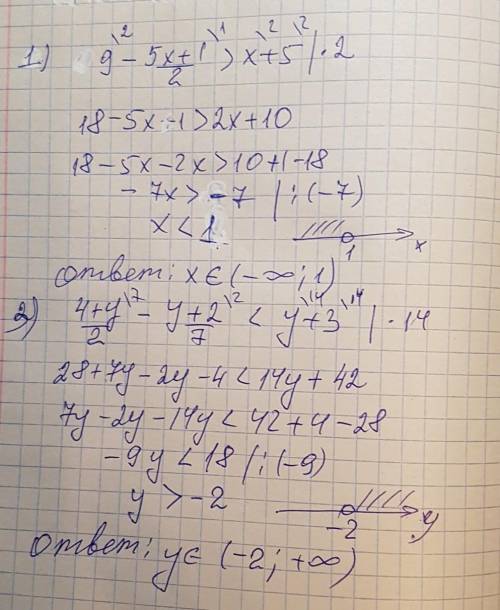 1) 9\² - (5x+1)/2\¹ > x\²+5\² | · 2
18-5x-1>2x+10
18-5x-2x>10+1-18
-7x>-7 | :(-7)
x<1
1 x
ответ: x∈(-∞;1)
2) (4+y)/2\⁷ - (y+2)/7\² < y\¹⁴+3\¹⁴ | · 14
28+7y-2y-4<14y+42
7y-2y-14y<42+4-28
-9y<18 | :(-9)
y>-2
-2 y
ответ: y∈(-2; +∞)